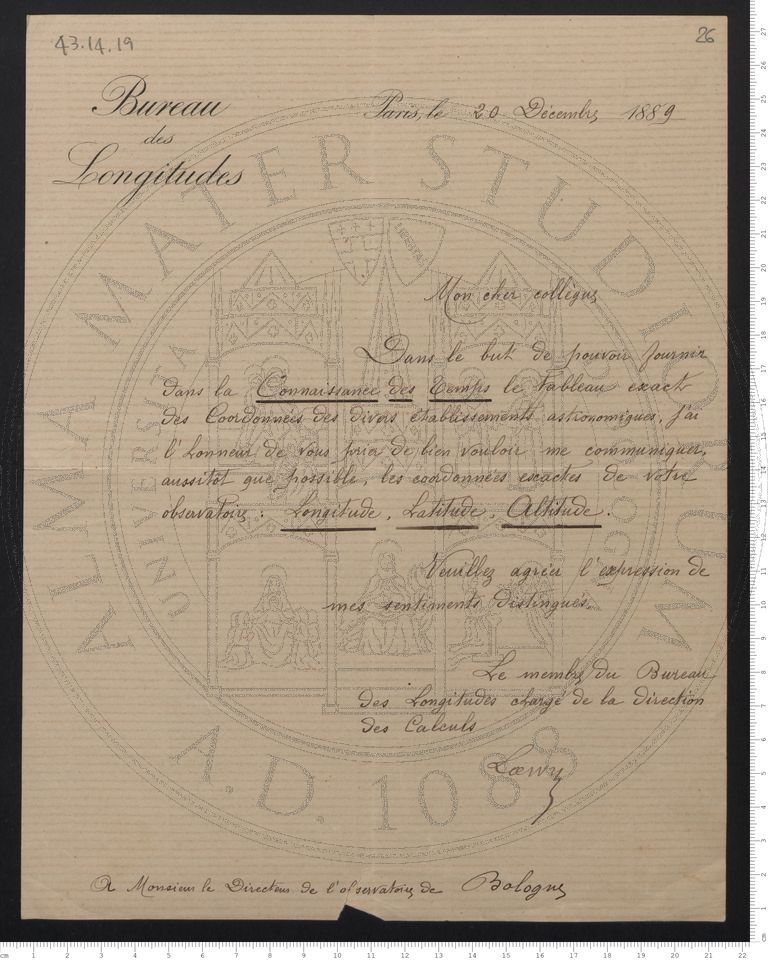 43.14.19
26
Bureau
des
Longitudes
Paris, le 20 Décembre 1889
Mon cher collègue
Dans le but de pouvoir fournir
dans la Connaissance des Temps le tableau exact
des Coordonnées des divers établissements astronomiques, j'ai
l'honneur de vous prier de bien vouloir me communiquer,
aussitôt que possible, les coordonnées exactes de votre
observatoire : Longitude, Latitude, Altitude.
Veuillez agréer l'expression de
mes sentiments distingués.
Le membre du Bureau
des Longitudes chargé de la direction
des Calculs
Lœwy
A Monsieur le Directeur de l'observatoire de Bologne
ALMA MATER STUDIORUM
A.D. 1088